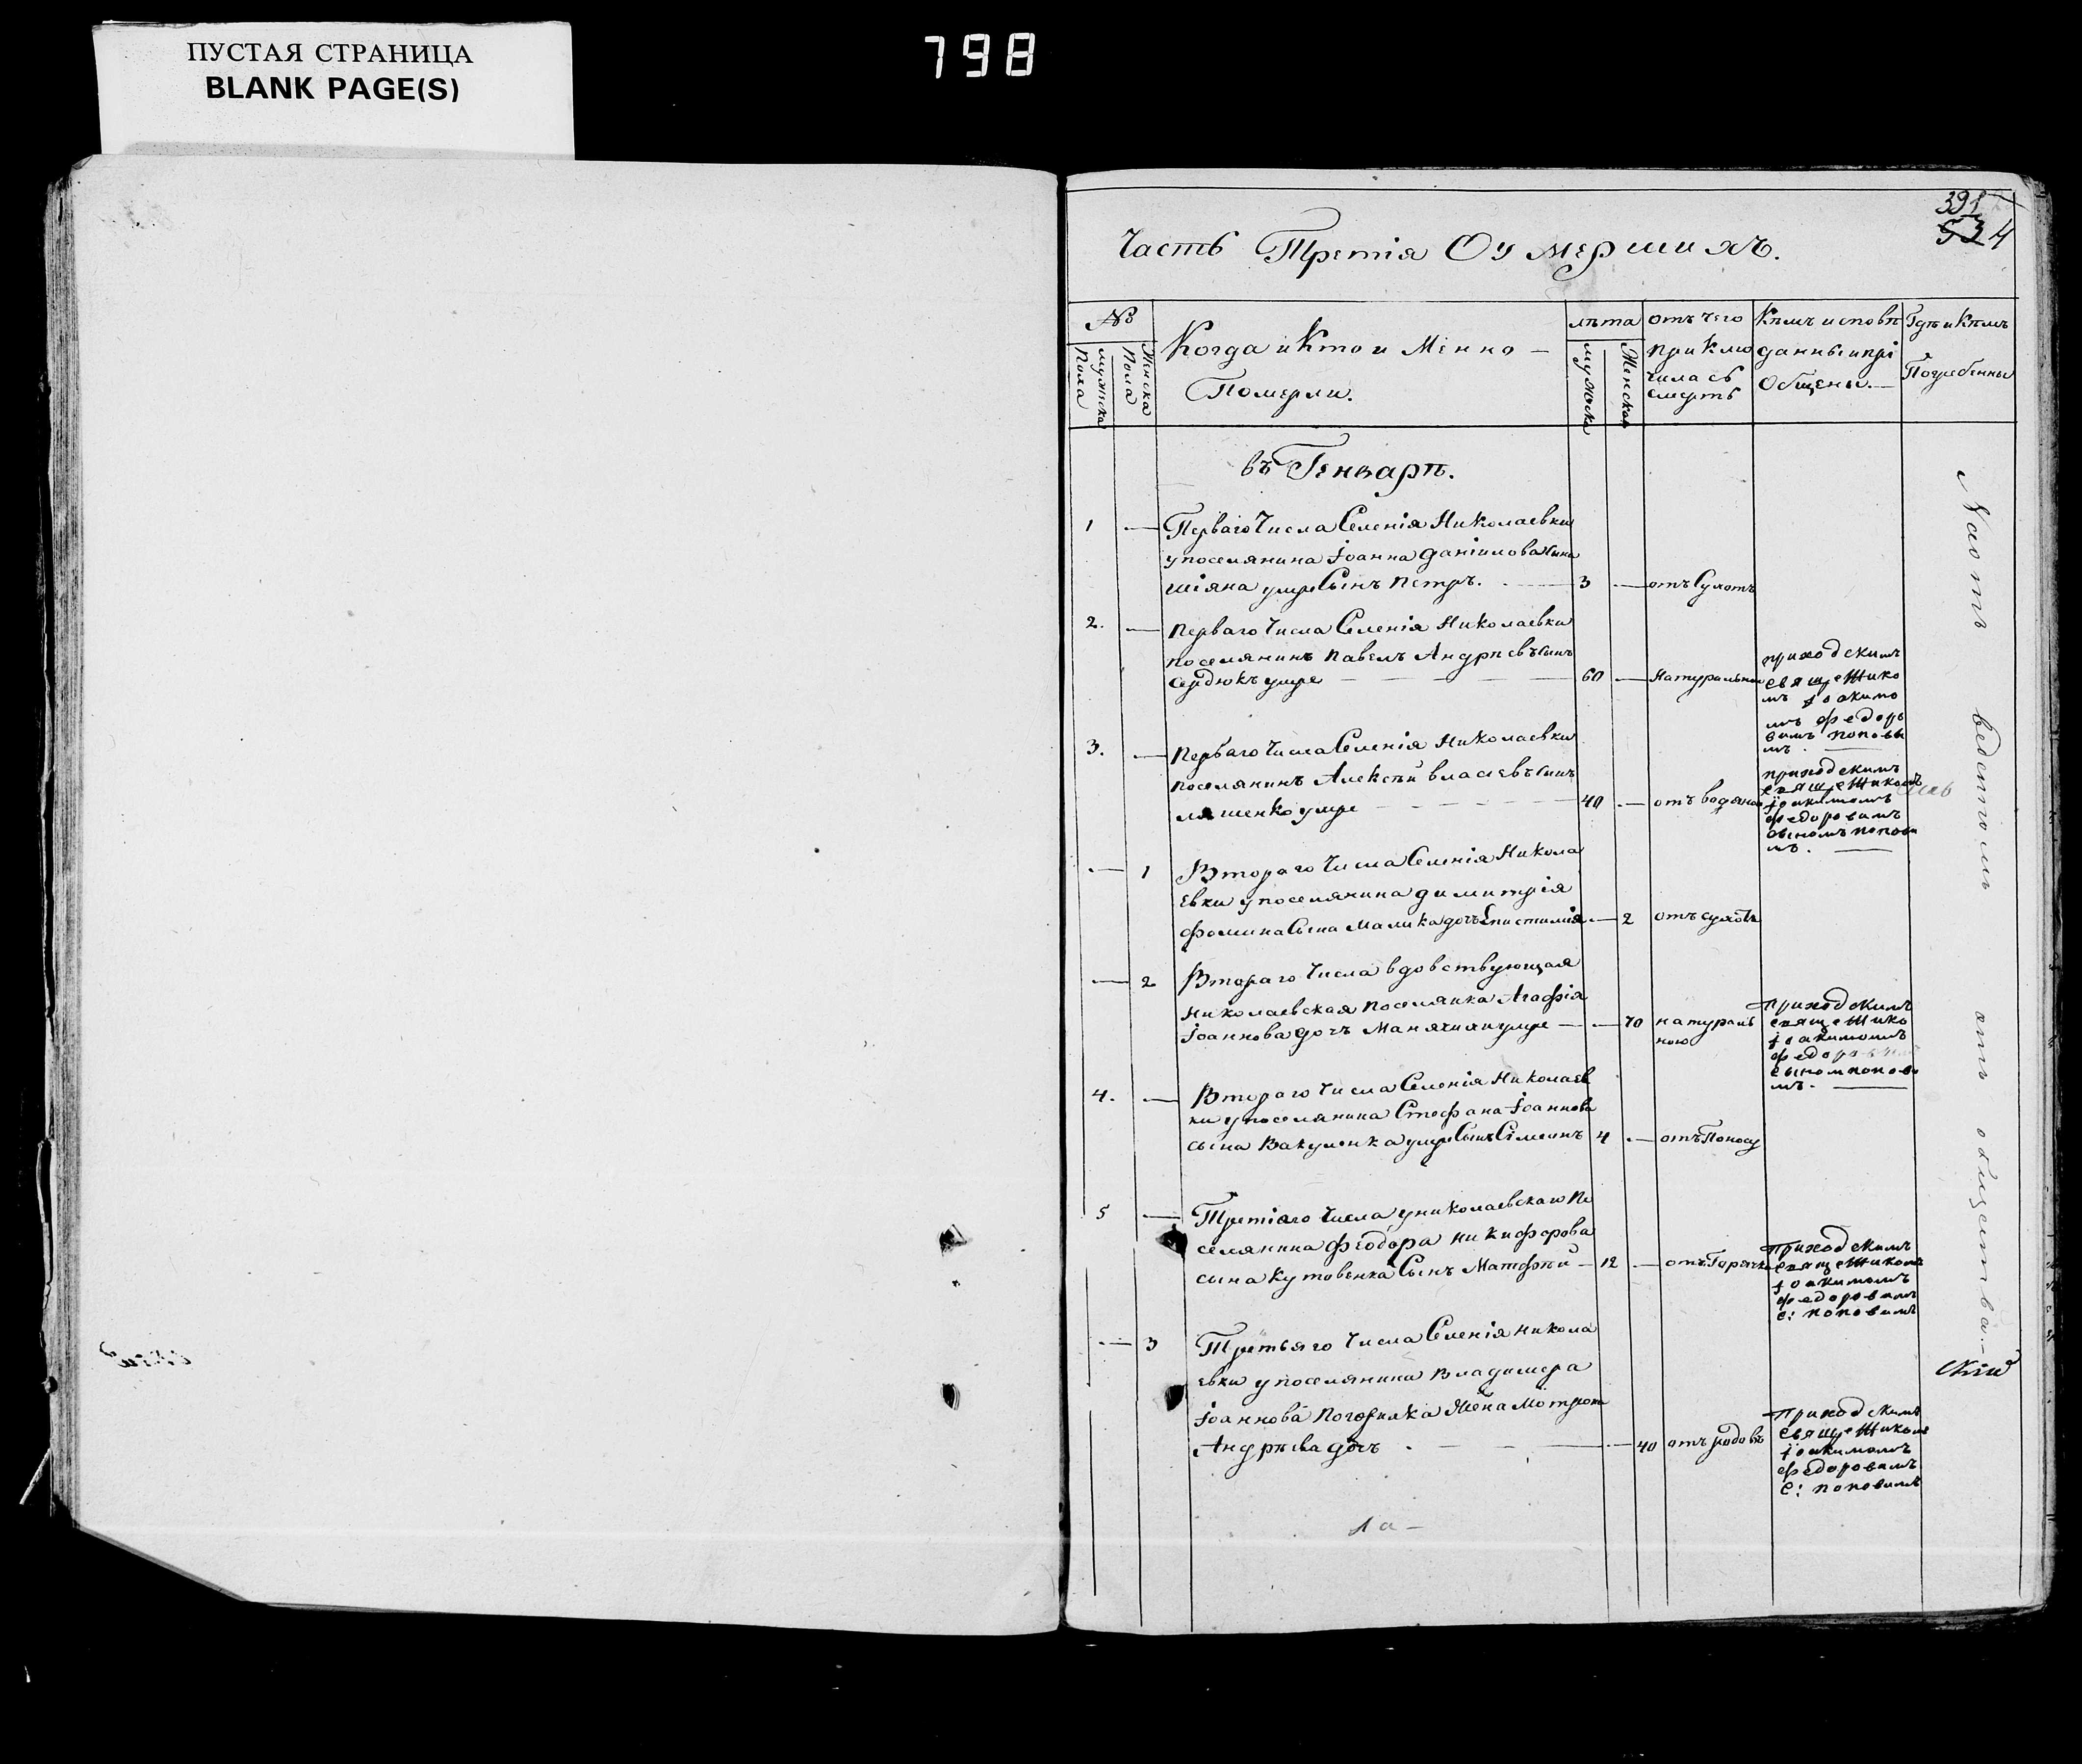 ПУСТАЯ СТРАНИЦА
BLANK PAGE(S)
798
391
53 4
Часть Третія Оумершихъ.
№
мужска Пола
Женска Пола
Когда и Кто и Менно —
Померли.
лѣта
мужска
Женска
отъ чего
приклю
чилась
смерть
Кѣмъ исповѣ
даны и прі
общены. —
Гдѣ и Кѣмъ
Погребенны
въ Генварѣ.
1 — Перваго Числа Селенія Николаевки
у поселянина Іоанна Даніилова Сина
шіяна умре Сынъ Петръ. — 3 — отъ Сухотъ
2. — Перваго Числа Селенія Николаевки
поселянинъ Павелъ Андрѣевъ Синъ
Сердюкъ умре — 60 — Натуральною
приходскимъ
священнико
мъ Іоакимо
мъ Федоро
вимъ Поповы
мъ. —
3. — Перваго Числа Селенія Николаевки
поселянинъ Алексѣй Власіевъ Синъ
ляшенко умре — 40 — отъ водяной
приходскимъ
священикомъ
Іоакимомъ
Федоровимъ
сыномъ Попови
мъ. —
— 1 Втораго Числа Селенія Никола
евки у поселянина Димитрія
Фомина Сына Малика дочь Епистимія — 2 отъ сухотъ
— 2 Втораго Числа вдовствующая
Николаевская Поселянка Агафія
Іоаннова дочъ умре — — 70 натураль
ною
Приходскимъ
священнико
Іоакимомъ
Федоровимъ
сыном Попови
мъ. —
4. — Втораго Числа Селенія Николаев
ки у поселянина Стефана Іоаннова
сына Вакуленка умре Сынъ Сімеонъ 4 — отъ Поносу
5 — Третіяго Числа у николаевскаго По
селянина Феодора Никифорова
сына Кутовенка Сынъ Матфѣй — 12 — отъ Горячки
Приходскимъ
священикомъ
Іоакимомъ
Федоровимъ
С: Поповимъ
— 3 Третьяго Числа Селенія Никола
евки у поселянина Владимера
Іоаннова Погорилка Жена Мотрона
Андрѣева дочъ — — 40 отъ родовъ
Приходскимъ
Священикомъ
Іоакимомъ
Федоровимъ
С: Поповимъ
1 а —